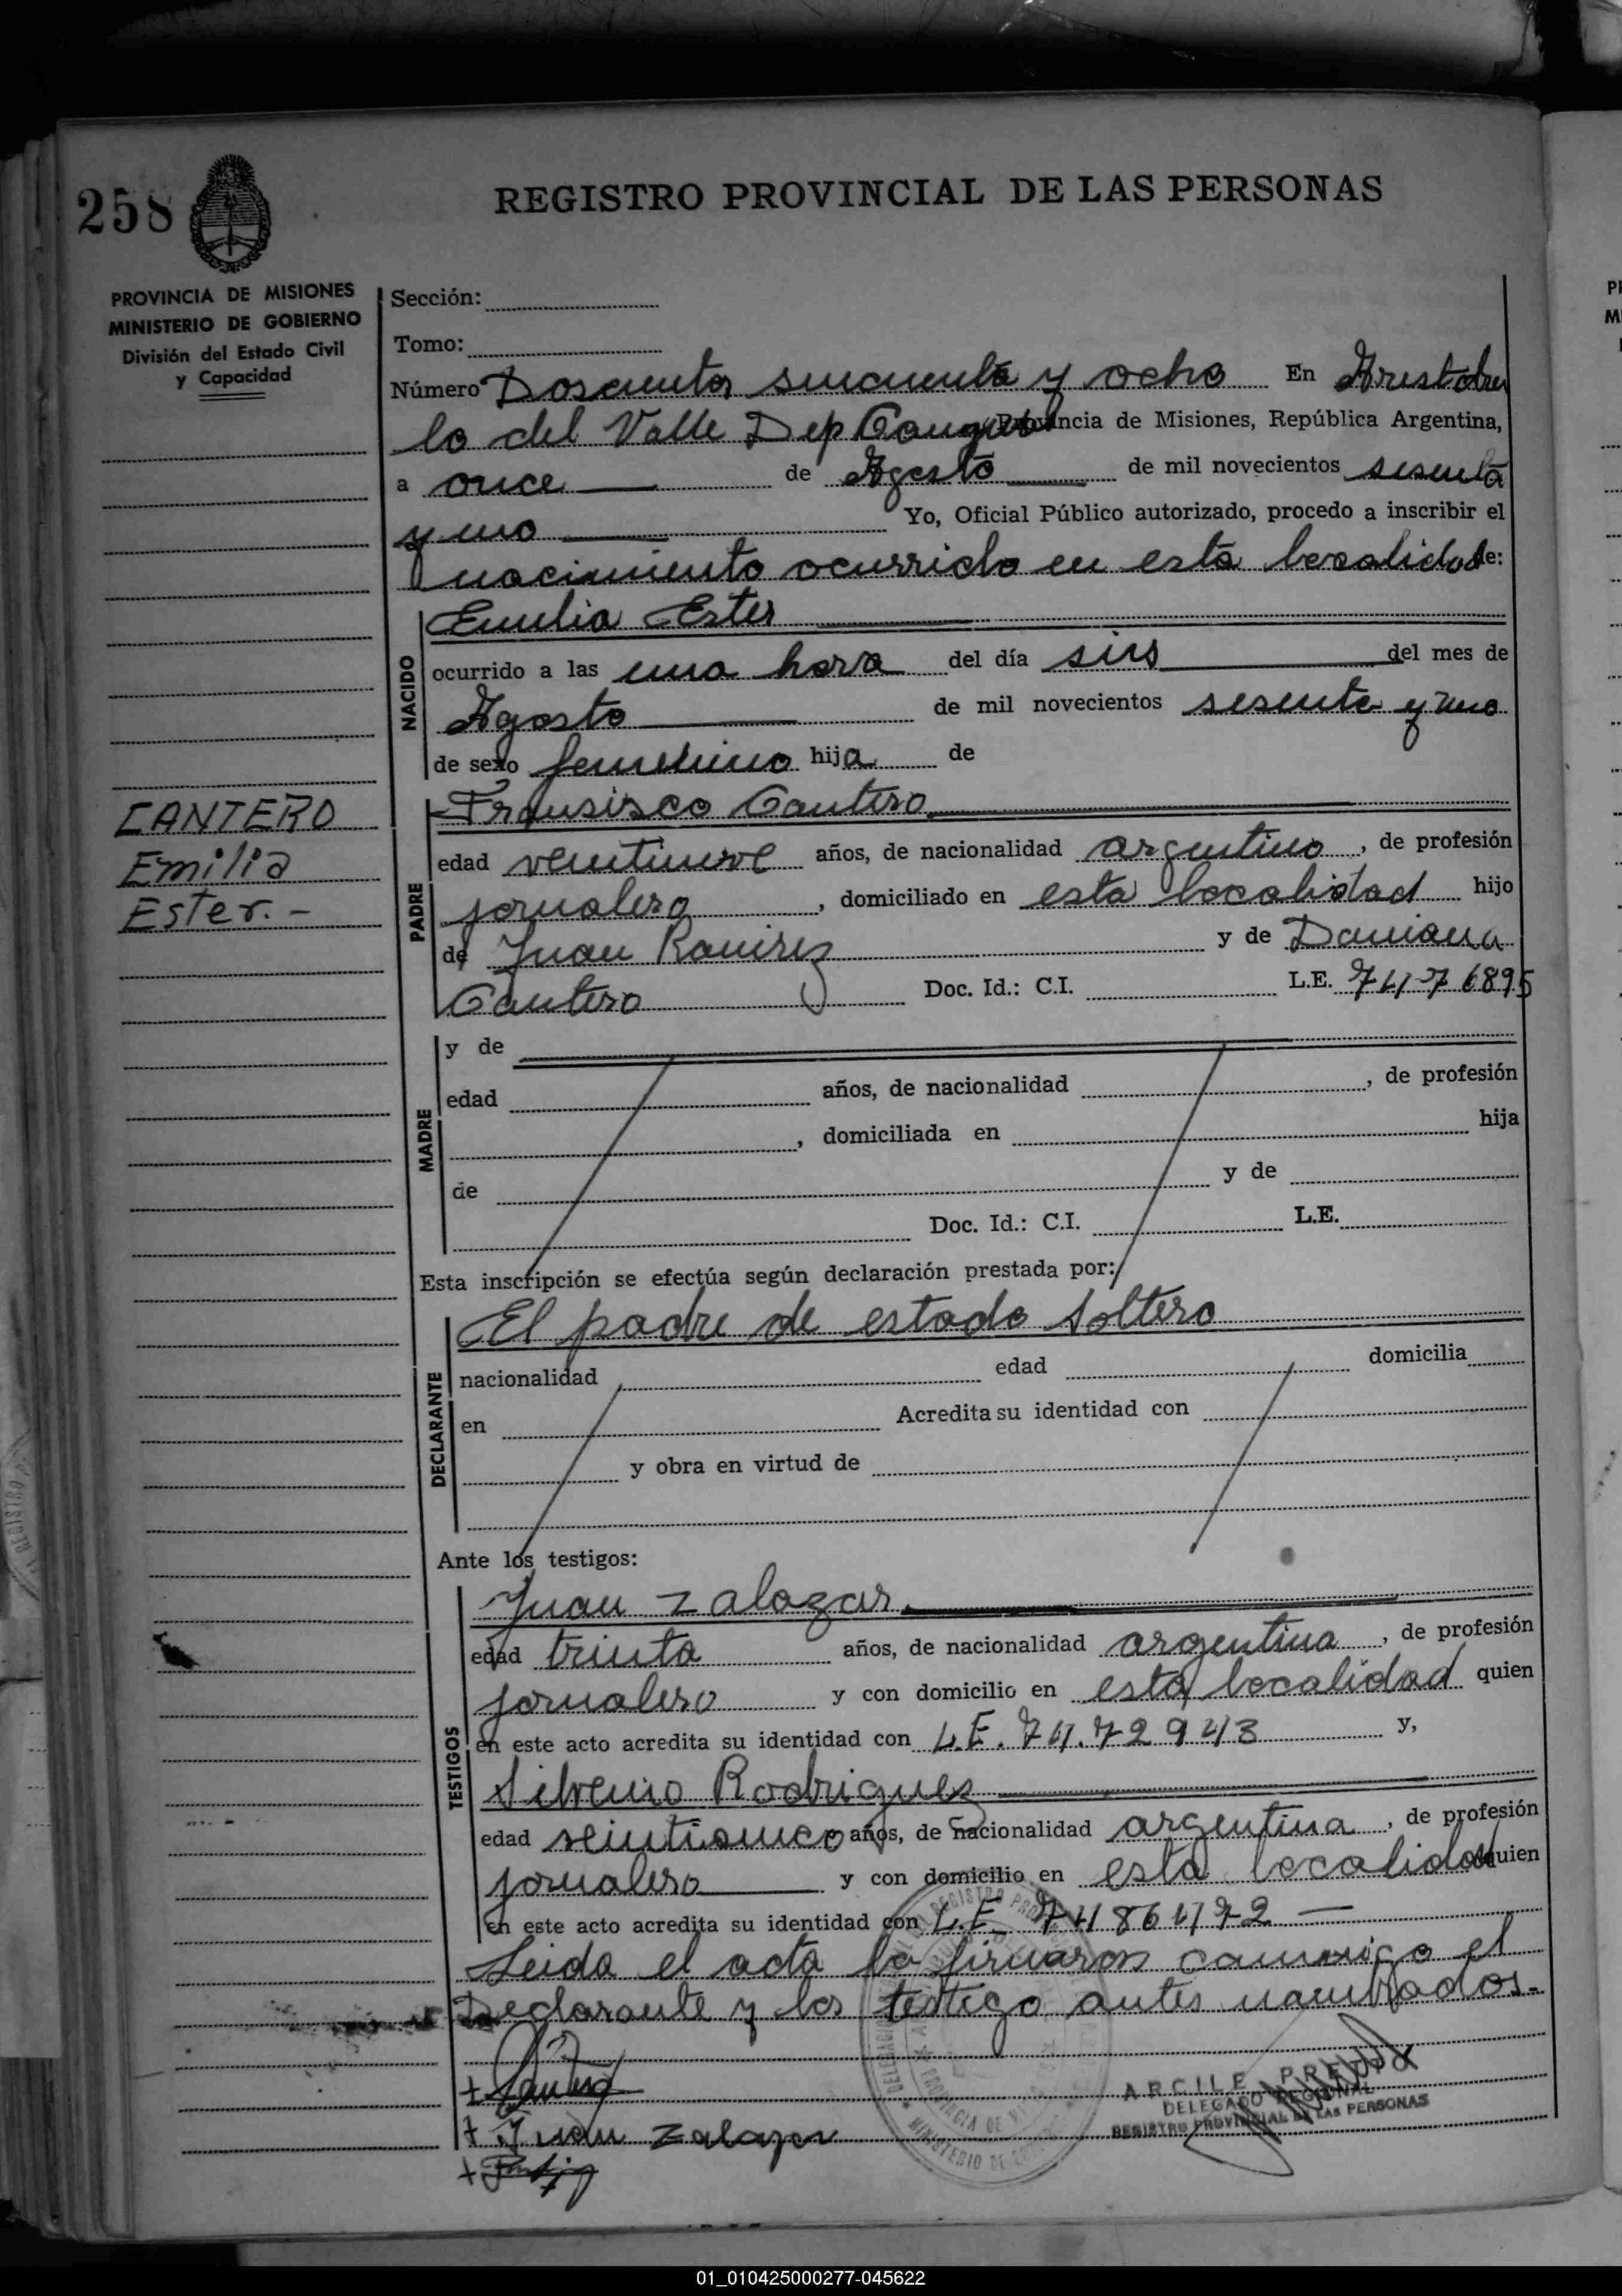 258
REGISTRO PROVINCIAL DE LAS PERSONAS
PROVINCIA DE MISIONES
MINISTERIO DE GOBIERNO
División del Estado Civil
y Capacidad
Sección:
Tomo:
Número Doscientos sincuenta y ocho En Aristobu
lo del Valle Dep Provincia de Misiones, República Argentina,
a once de Agosto de mil novecientos sesenta
y uno Yo, Oficial Público autorizado, procedo a inscribir el
nacimiento ocurrido en esta localidad de:
NACIDO
Emilia Ester
ocurrido a las una hora del día seis del mes de
Agosto de mil novecientos sesenta y uno
de sexo femenino hija de
CANTERO
Emilia
Ester.-
PADRE
Fransisco Cantero
edad ventinueve años, de nacionalidad argentino, de profesión
jornalero, domiciliado en esta localidad hijo
de Juan Ramirez y de Damiana
Cantero Doc. Id.: C.I. L.E. 7476895
MADRE
y de
edad años, de nacionalidad, de profesión
, domiciliada en hija
de y de
Doc. Id.: C.I. L.E.
Esta inscripción se efectúa según declaración prestada por:
DECLARANTE
El padre de estado soltero
nacionalidad edad domicilia
en Acredita su identidad con
y obra en virtud de
Ante los testigos:
TESTIGOS
Juan Zalazar
edad trinta años, de nacionalidad argentina, de profesión
jornalero y con domicilio en esta localidad quien
en este acto acredita su identidad con L.E. 74.72943 y,
Silvenio Rodriguez
edad años, de nacionalidad argentina, de profesión
jornalero y con domicilio en esta localidad quien
en este acto acredita su identidad con L.E. 7486472
Leida el acta la firmaron conmigo el
Declarante y los testigo antes nombrados.-
+ Cantero
+ Juan Zalazar
+
ARCILE PREYTO
DELEGADO REGIONAL
REGISTRO PROVINCIAL DE LAS PERSONAS
01_010425000277-045622